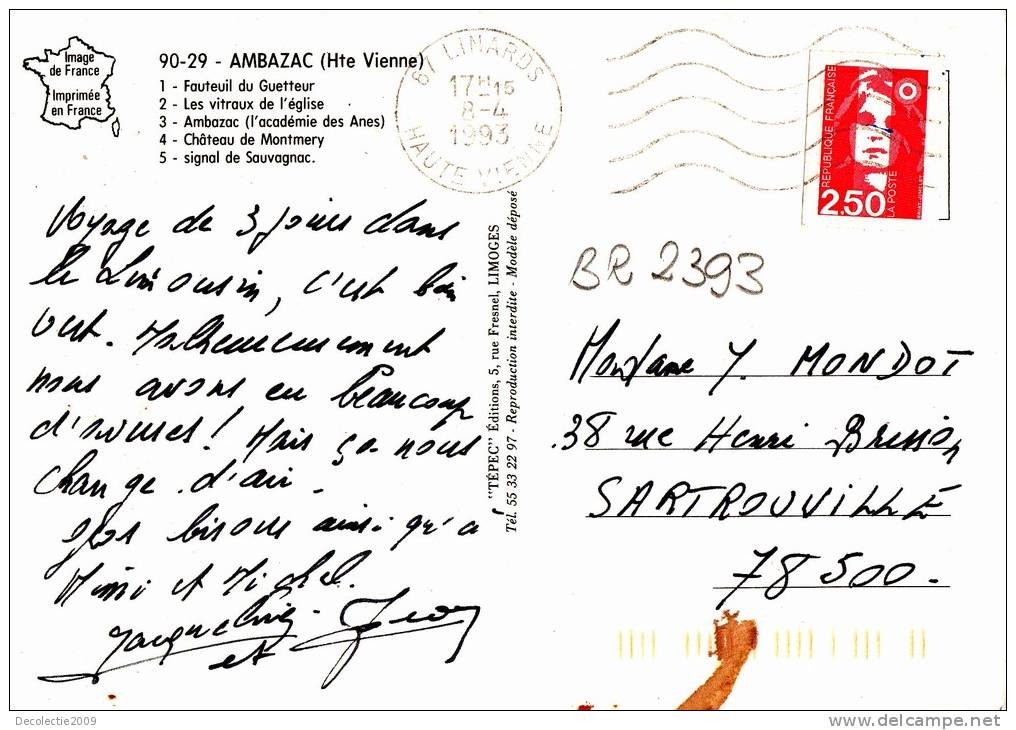 Image
de France
Imprimée
en France
90-29 - AMBAZAC (Hte Vienne)
1 - Fauteuil du Guetteur
2 - Les vitraux de l'église
3 - Ambazac (l'académie des Anes)
4 - Château de Montmery
5 - signal de Sauvagnac.
87 LINARDS
17H15
8-4
1993
HAUTE VIENNE
RÉPUBLIQUE FRANÇAISE
LA POSTE
2,50
Voyage de 3 jours dans
le Limousin, c'est bien
vert. Malheureusement
nous avons eu beaucoup
d'averses! Mais ça nous
change d'air.
Gros bisous ainsi qu'à
Mimi et Michel.
Jacqueline
et
"TÉPEC" Éditions, 5, rue Fresnel, LIMOGES
Tél. 55 33 22 97 - Reproduction interdite - Modèle déposé
BR 2393
Madame Y. MONDOT
38 rue Henri Brisson
SARTROUVILLE
78500.
Decolectie2009
delcampe.net